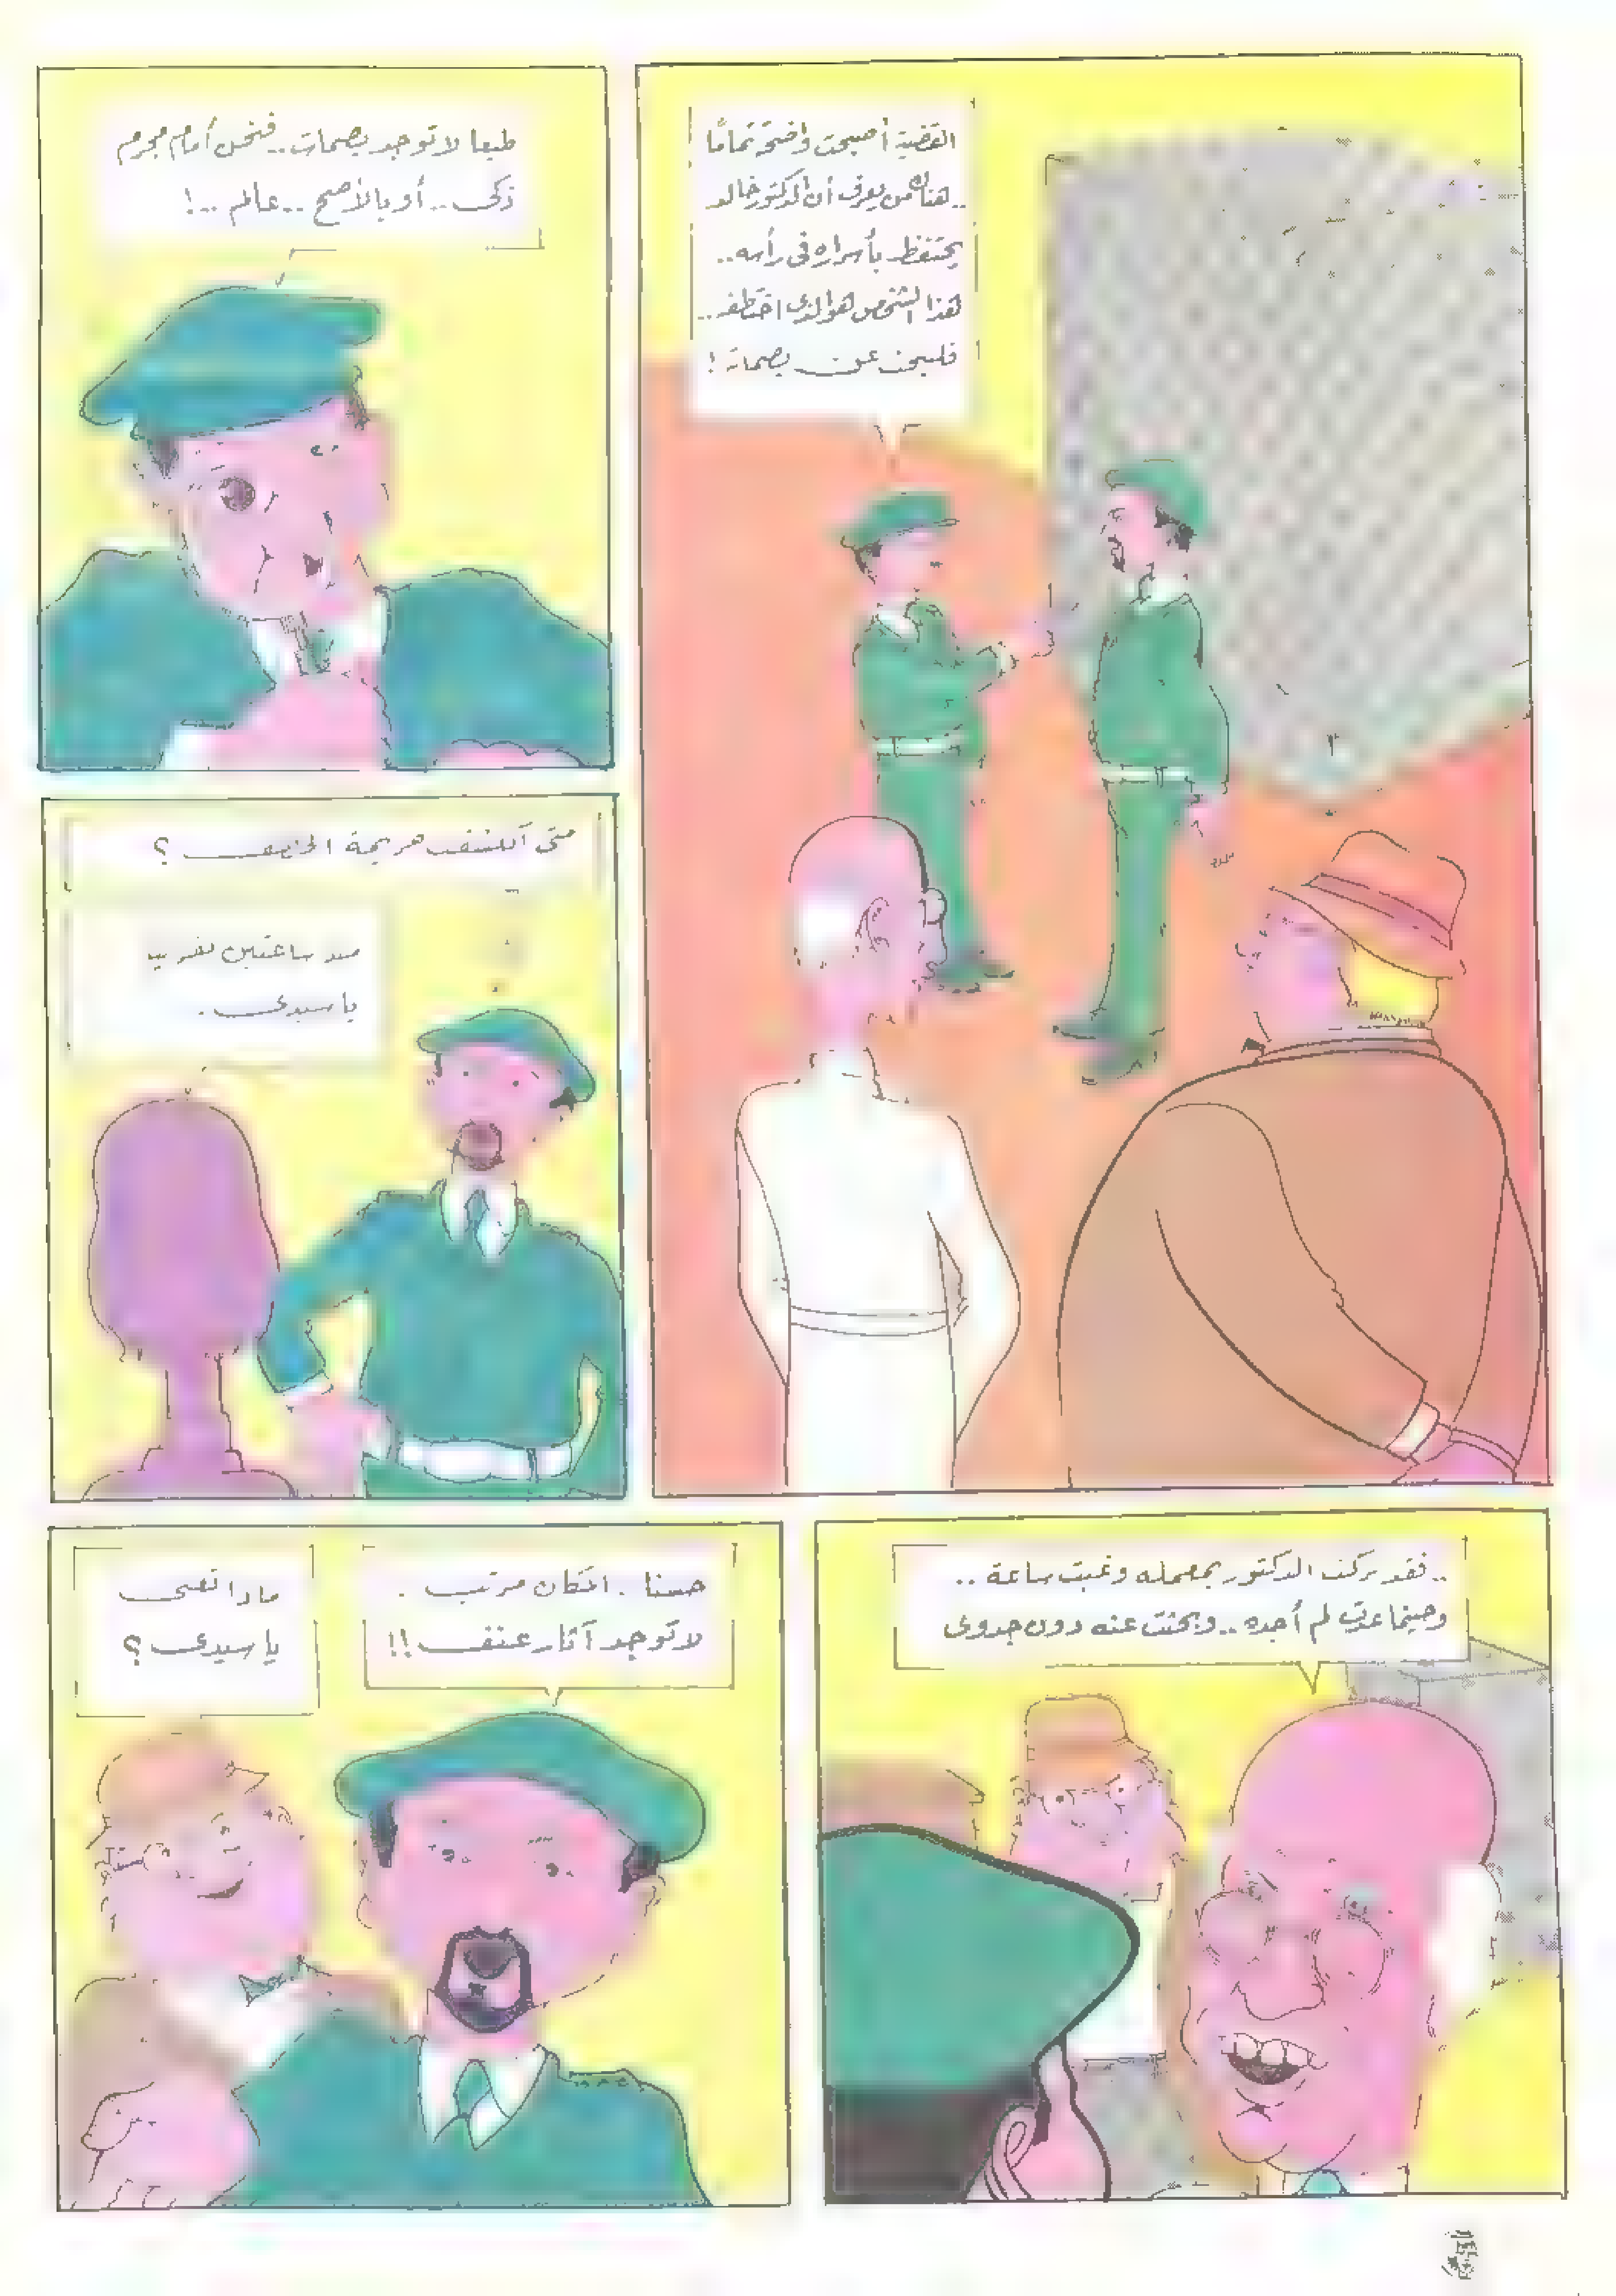 القضية أصبحت واضحة تمامًا
.. هناك من يعرف أن الدكتور خالد
يحتفظ بأسراره في رأسه ..
هذا الشخص هو الذي اختطفه ..
فلنبحث عن بصمات !
طبعا لا توجد بصمات .. فنحن أمام مجرم
ذكى .. أو بالأصح .. عالم .. !
متى اكتشفت جريمة الخطف ؟
منذ ساعتين تقريبا
يا سيدى .
.. فقد تركت الدكتور بمعمله وغبت ساعة ..
وحينما عدت لم أجده .. وبحثت عنه دون جدوى
حسنا . المكان مرتب .
لا توجد آثار عنف !!
ماذا تعنى
يا سيدى ؟